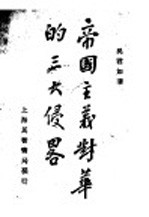 吳君如著
帝國主義對華
的三大侵略
上海民智書局發行